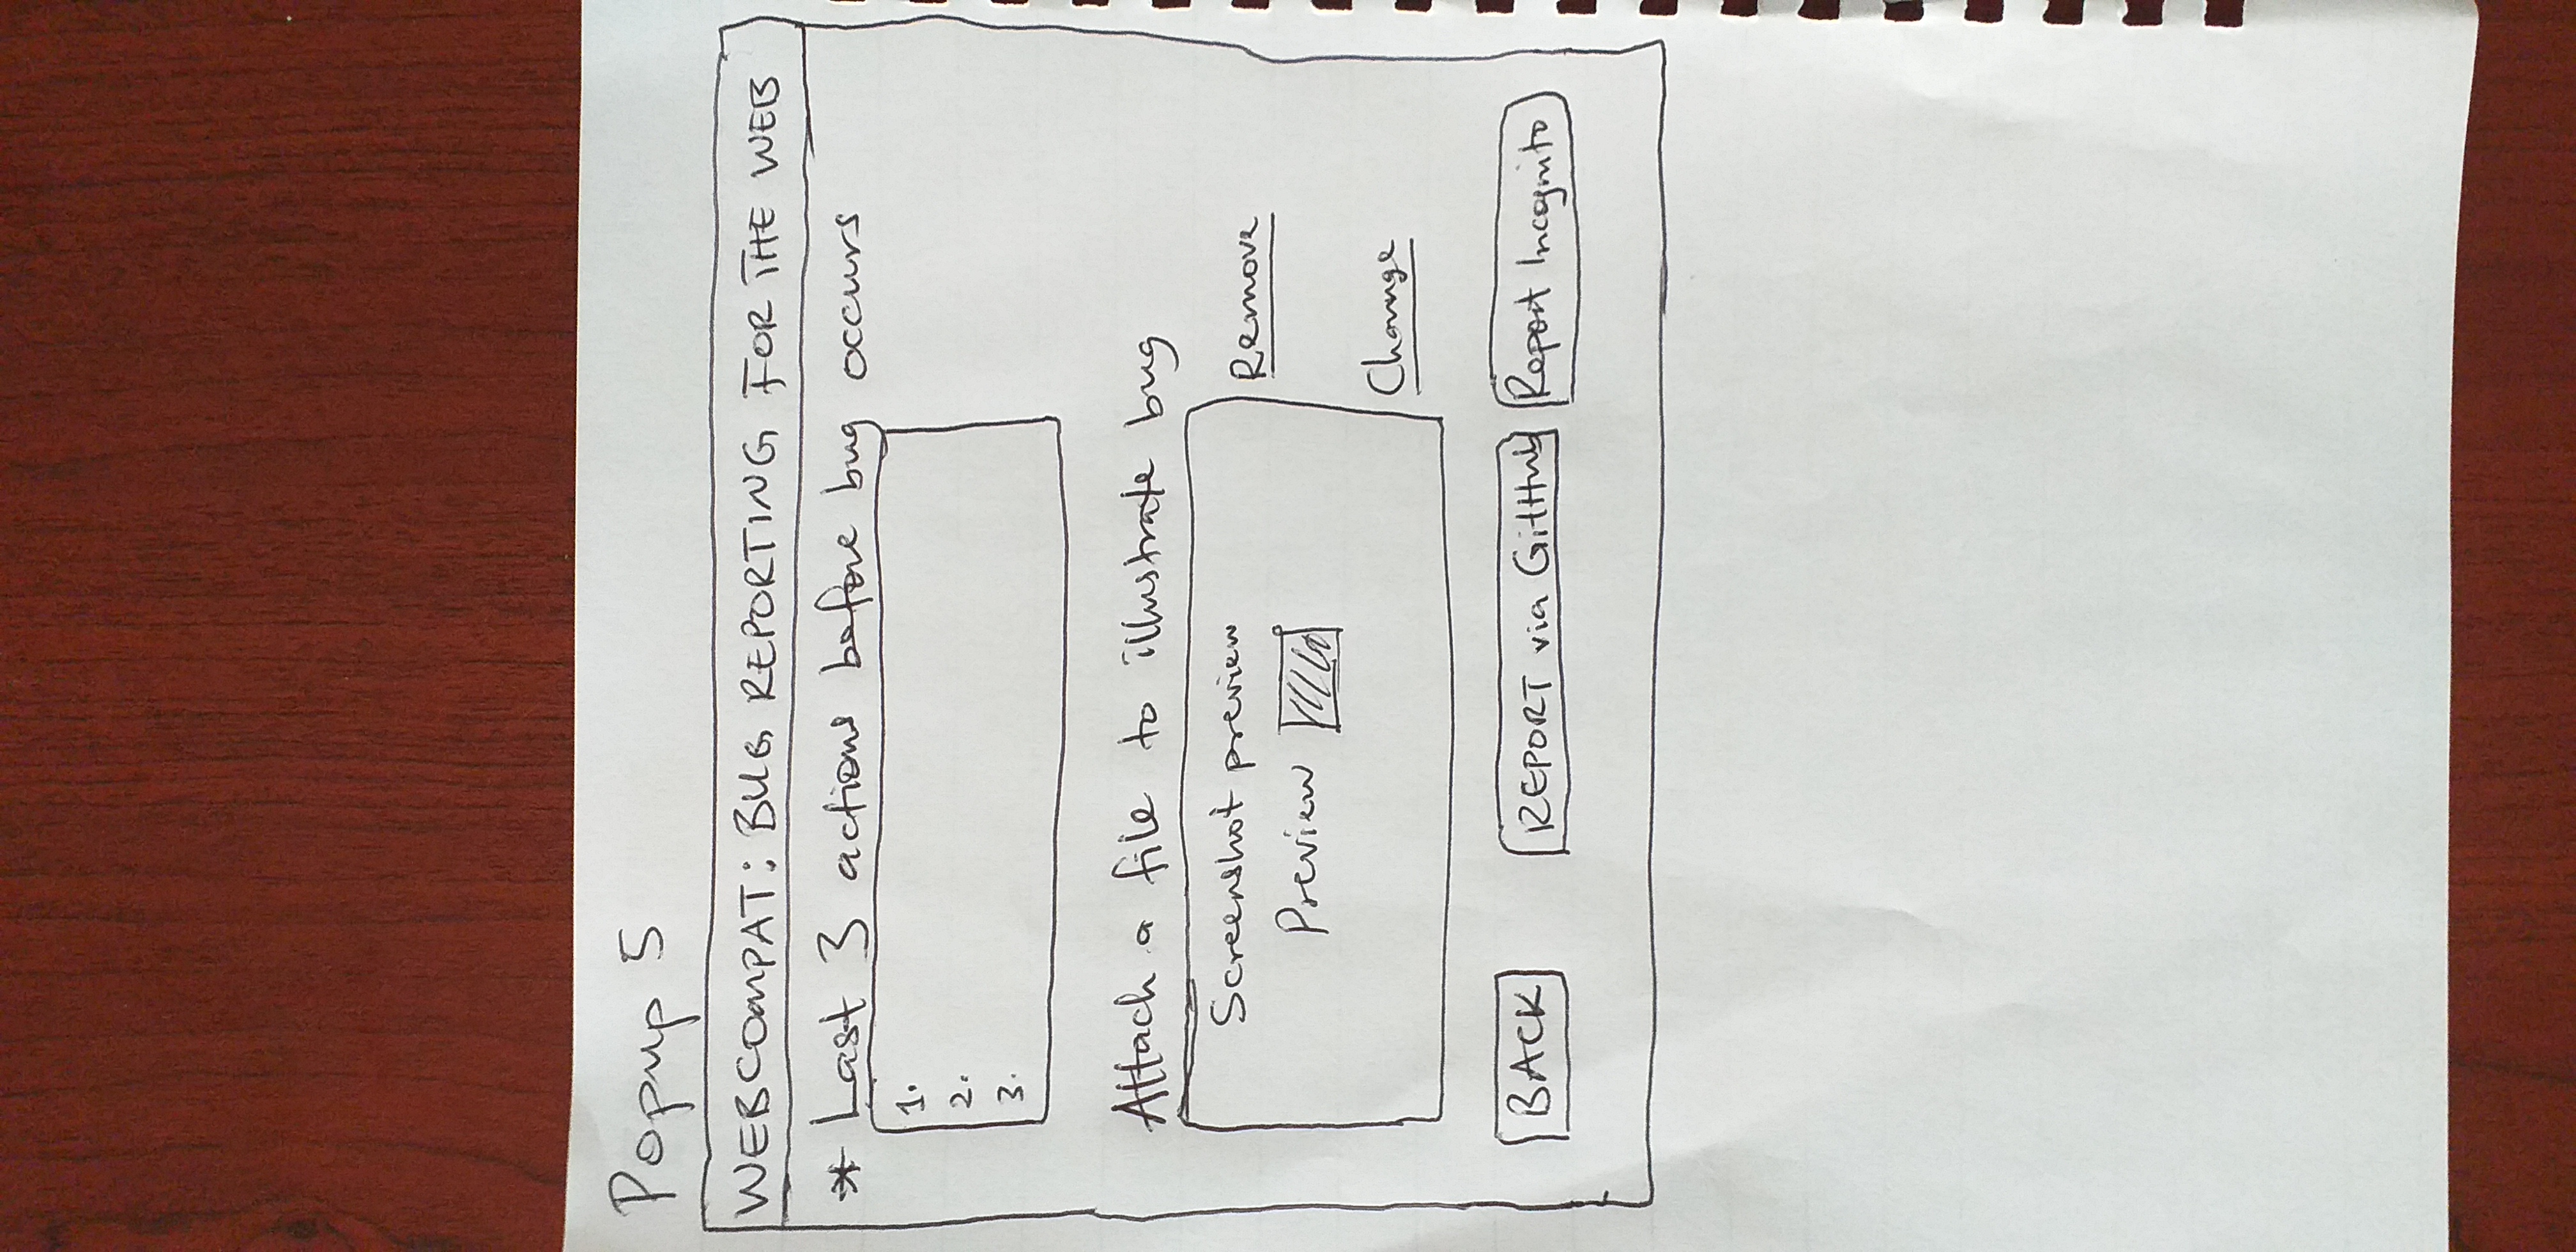 Popup 5
WEBCOMPAT: BUG REPORTING FOR THE WEB
* Last 3 actions before bug occurs
1.
2.
3.
Attach a file to illustrate bug
Screenshot preview
Remove
Preview
Change
BACK REPORT via GitHub Report Incognito